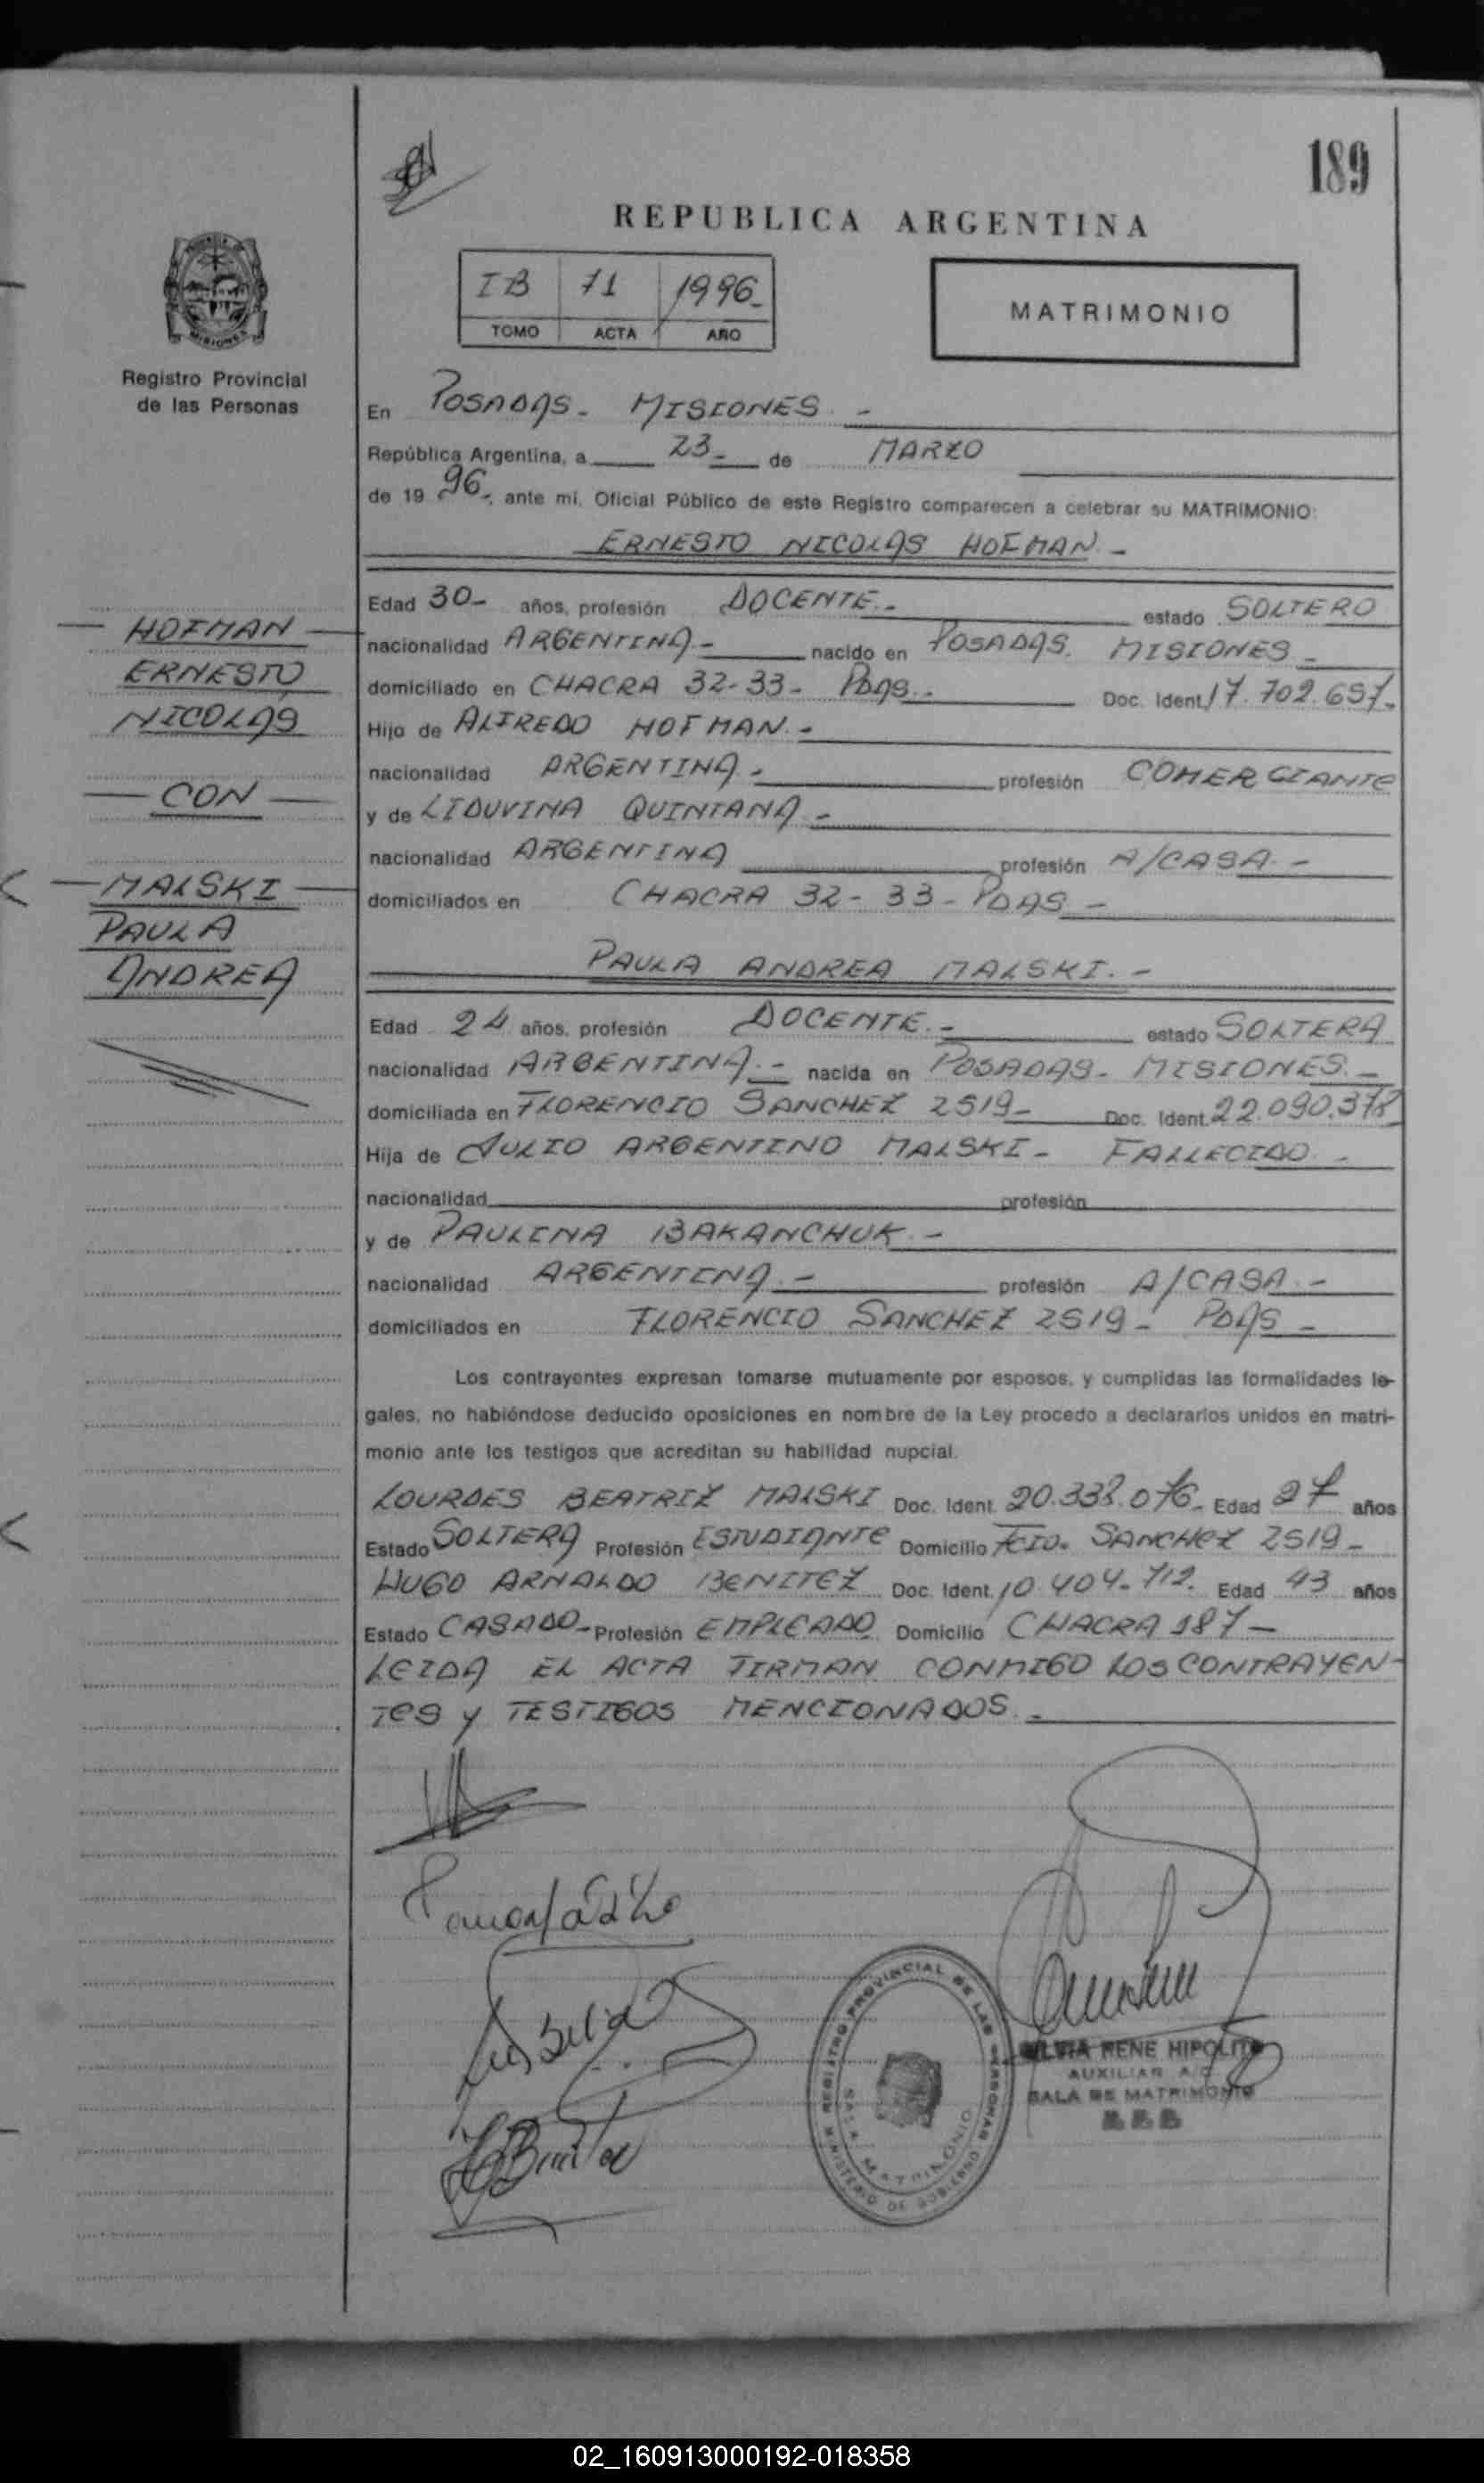 189
REPUBLICA ARGENTINA
IB 71 1996
TOMO ACTA AÑO
MATRIMONIO
MISIONES
Registro Provincial
de las Personas
En POSADAS - MISIONES -
República Argentina, a 23- de MARZO
de 19 96-, ante mí, Oficial Público de este Registro comparecen a celebrar su MATRIMONIO:
ERNESTO NICOLAS HOFMAN.-
HOFMAN
ERNESTO
NICOLAS
CON
MALSKI
PAULA
ANDREA
Edad 30- años, profesión DOCENTE.- estado SOLTERO
nacionalidad ARGENTINA.- nacido en POSADAS. MISIONES -
domiciliado en CHACRA 32-33- Pdas.- Doc. Ident. 17.702.657.-
Hijo de ALFREDO HOFMAN.-
nacionalidad ARGENTINA.- profesión COMERCIANTE
y de LIDUVINA QUINTANA.-
nacionalidad ARGENTINA profesión A/CASA.-
domiciliados en CHACRA 32-33- PDAS -
PAULA ANDREA MALSKI.-
Edad 24 años, profesión DOCENTE.- estado SOLTERA
nacionalidad ARGENTINA.- nacida en POSADAS- MISIONES.-
domiciliada en FLORENCIO SANCHEZ 2519- Doc. Ident. 22.090.378
Hija de JULIO ARGENTINO MALSKI- FALLECIDO.-
nacionalidad profesión
y de PAULINA BAKANCHUK.-
nacionalidad ARGENTINA.- profesión A/CASA.-
domiciliados en FLORENCIO SANCHEZ 2519- PDAS -
Los contrayentes expresan tomarse mutuamente por esposos, y cumplidas las formalidades le-
gales, no habiéndose deducido oposiciones en nombre de la Ley procedo a declararlos unidos en matri-
monio ante los testigos que acreditan su habilidad nupcial.
LOURDES BEATRIZ MALSKI Doc. Ident. 20.338.076- Edad 27 años
Estado SOLTERA Profesión ESTUDIANTE Domicilio FCIO. SANCHEZ 2519-
HUGO ARNALDO BENITEZ Doc. Ident. 10.404.712. Edad 43 años
Estado CASADO- Profesión EMPLEADO Domicilio CHACRA 187-
LEIDA EL ACTA FIRMAN CONMIGO LOS CONTRAYEN-
TES y TESTIGOS MENCIONADOS.-
REGISTRO PROVINCIAL DE LAS PERSONAS
SALA MATRIMONIO
MINISTERIO DE GOBIERNO
SILVIA RENE HIPOLITO
AUXILIAR
SALA DE MATRIMONIO
02_160913000192-018358